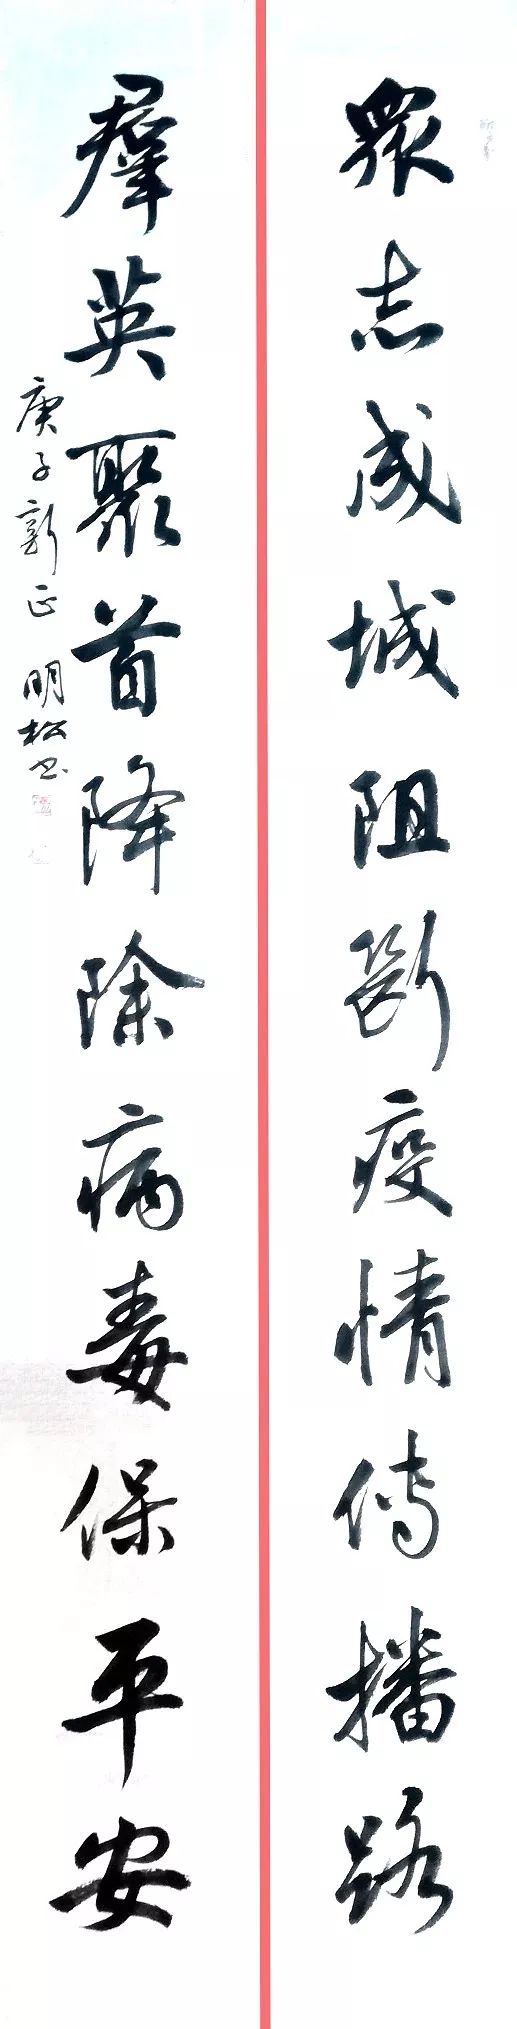 眾志成城阻斷疫情傳播路
羣英聚首降除病毒保平安
庚子新正 明松书